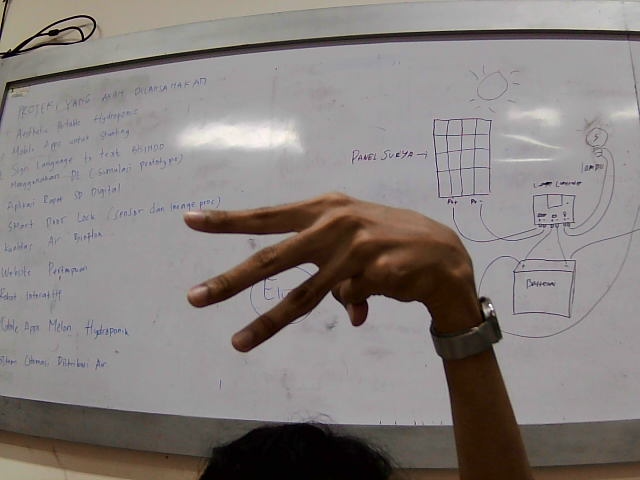 PROYEK YANG AKAN DILAKSANAKAN
Aesthetic Portable Hydroponic
Mobile Apps untuk Stunting
Sign Language to text BISINDO
Menggunakan DL (simulasi prototype)
Aplikasi Rapor SD Digital
Smart Door Lock (sensor dan image proc)
Kualitas Air Bioflok
Website Perempuan
Robot Interaktif
Mobile Apps Melon Hydroponik
Sistem Otomasi Distribusi Air
PANEL SURYA →
LAMPU
BATTERAI